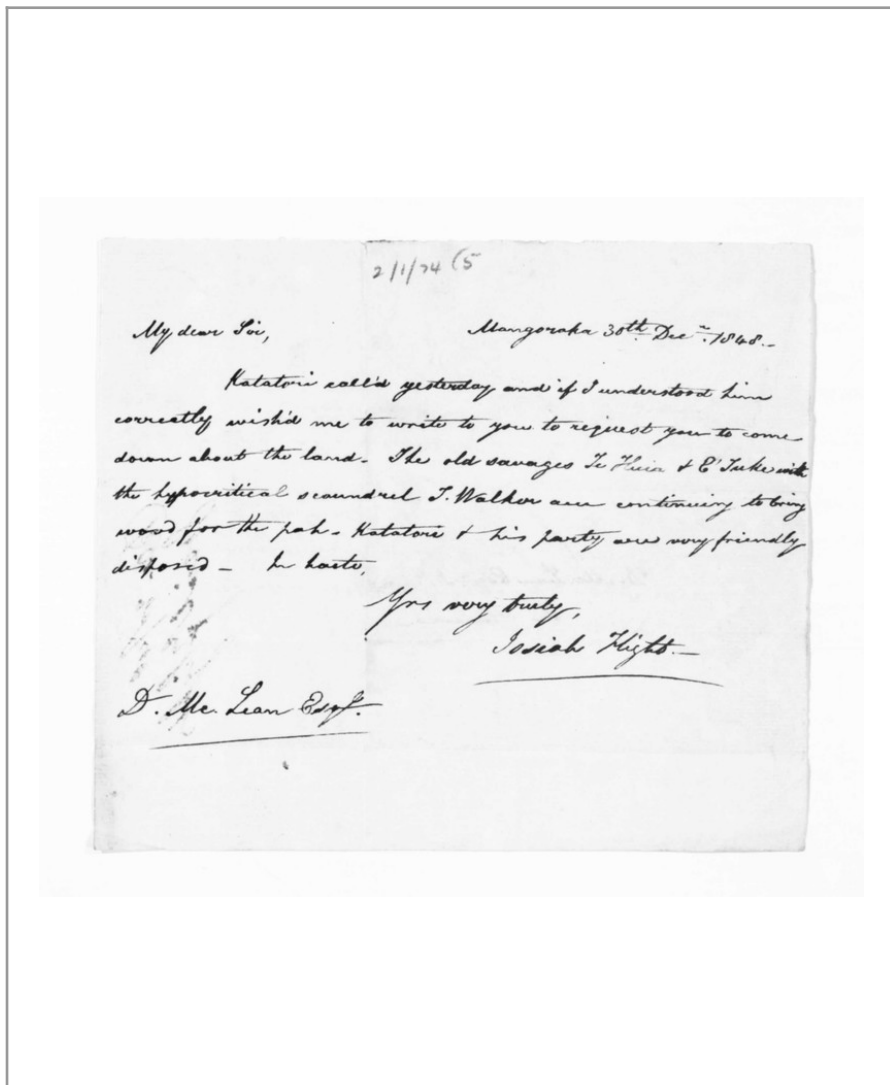 2/1/74 (5
My dear Sir, Mangoraka 30th Decr. 1848.–
Katatori call'd yesterday and if I understood him
correctly wish'd me to write to you to request you to come
down about the land. The old savages Te Huia & E' Tuke with
the hypocritical scoundrel T. Walker are continuing to bring
wood for the pah. Katatori & his party are very friendly
disposed – In haste,
Yrs very truly,
Josiah Flight.–
D. Mc. Lean Esqr.